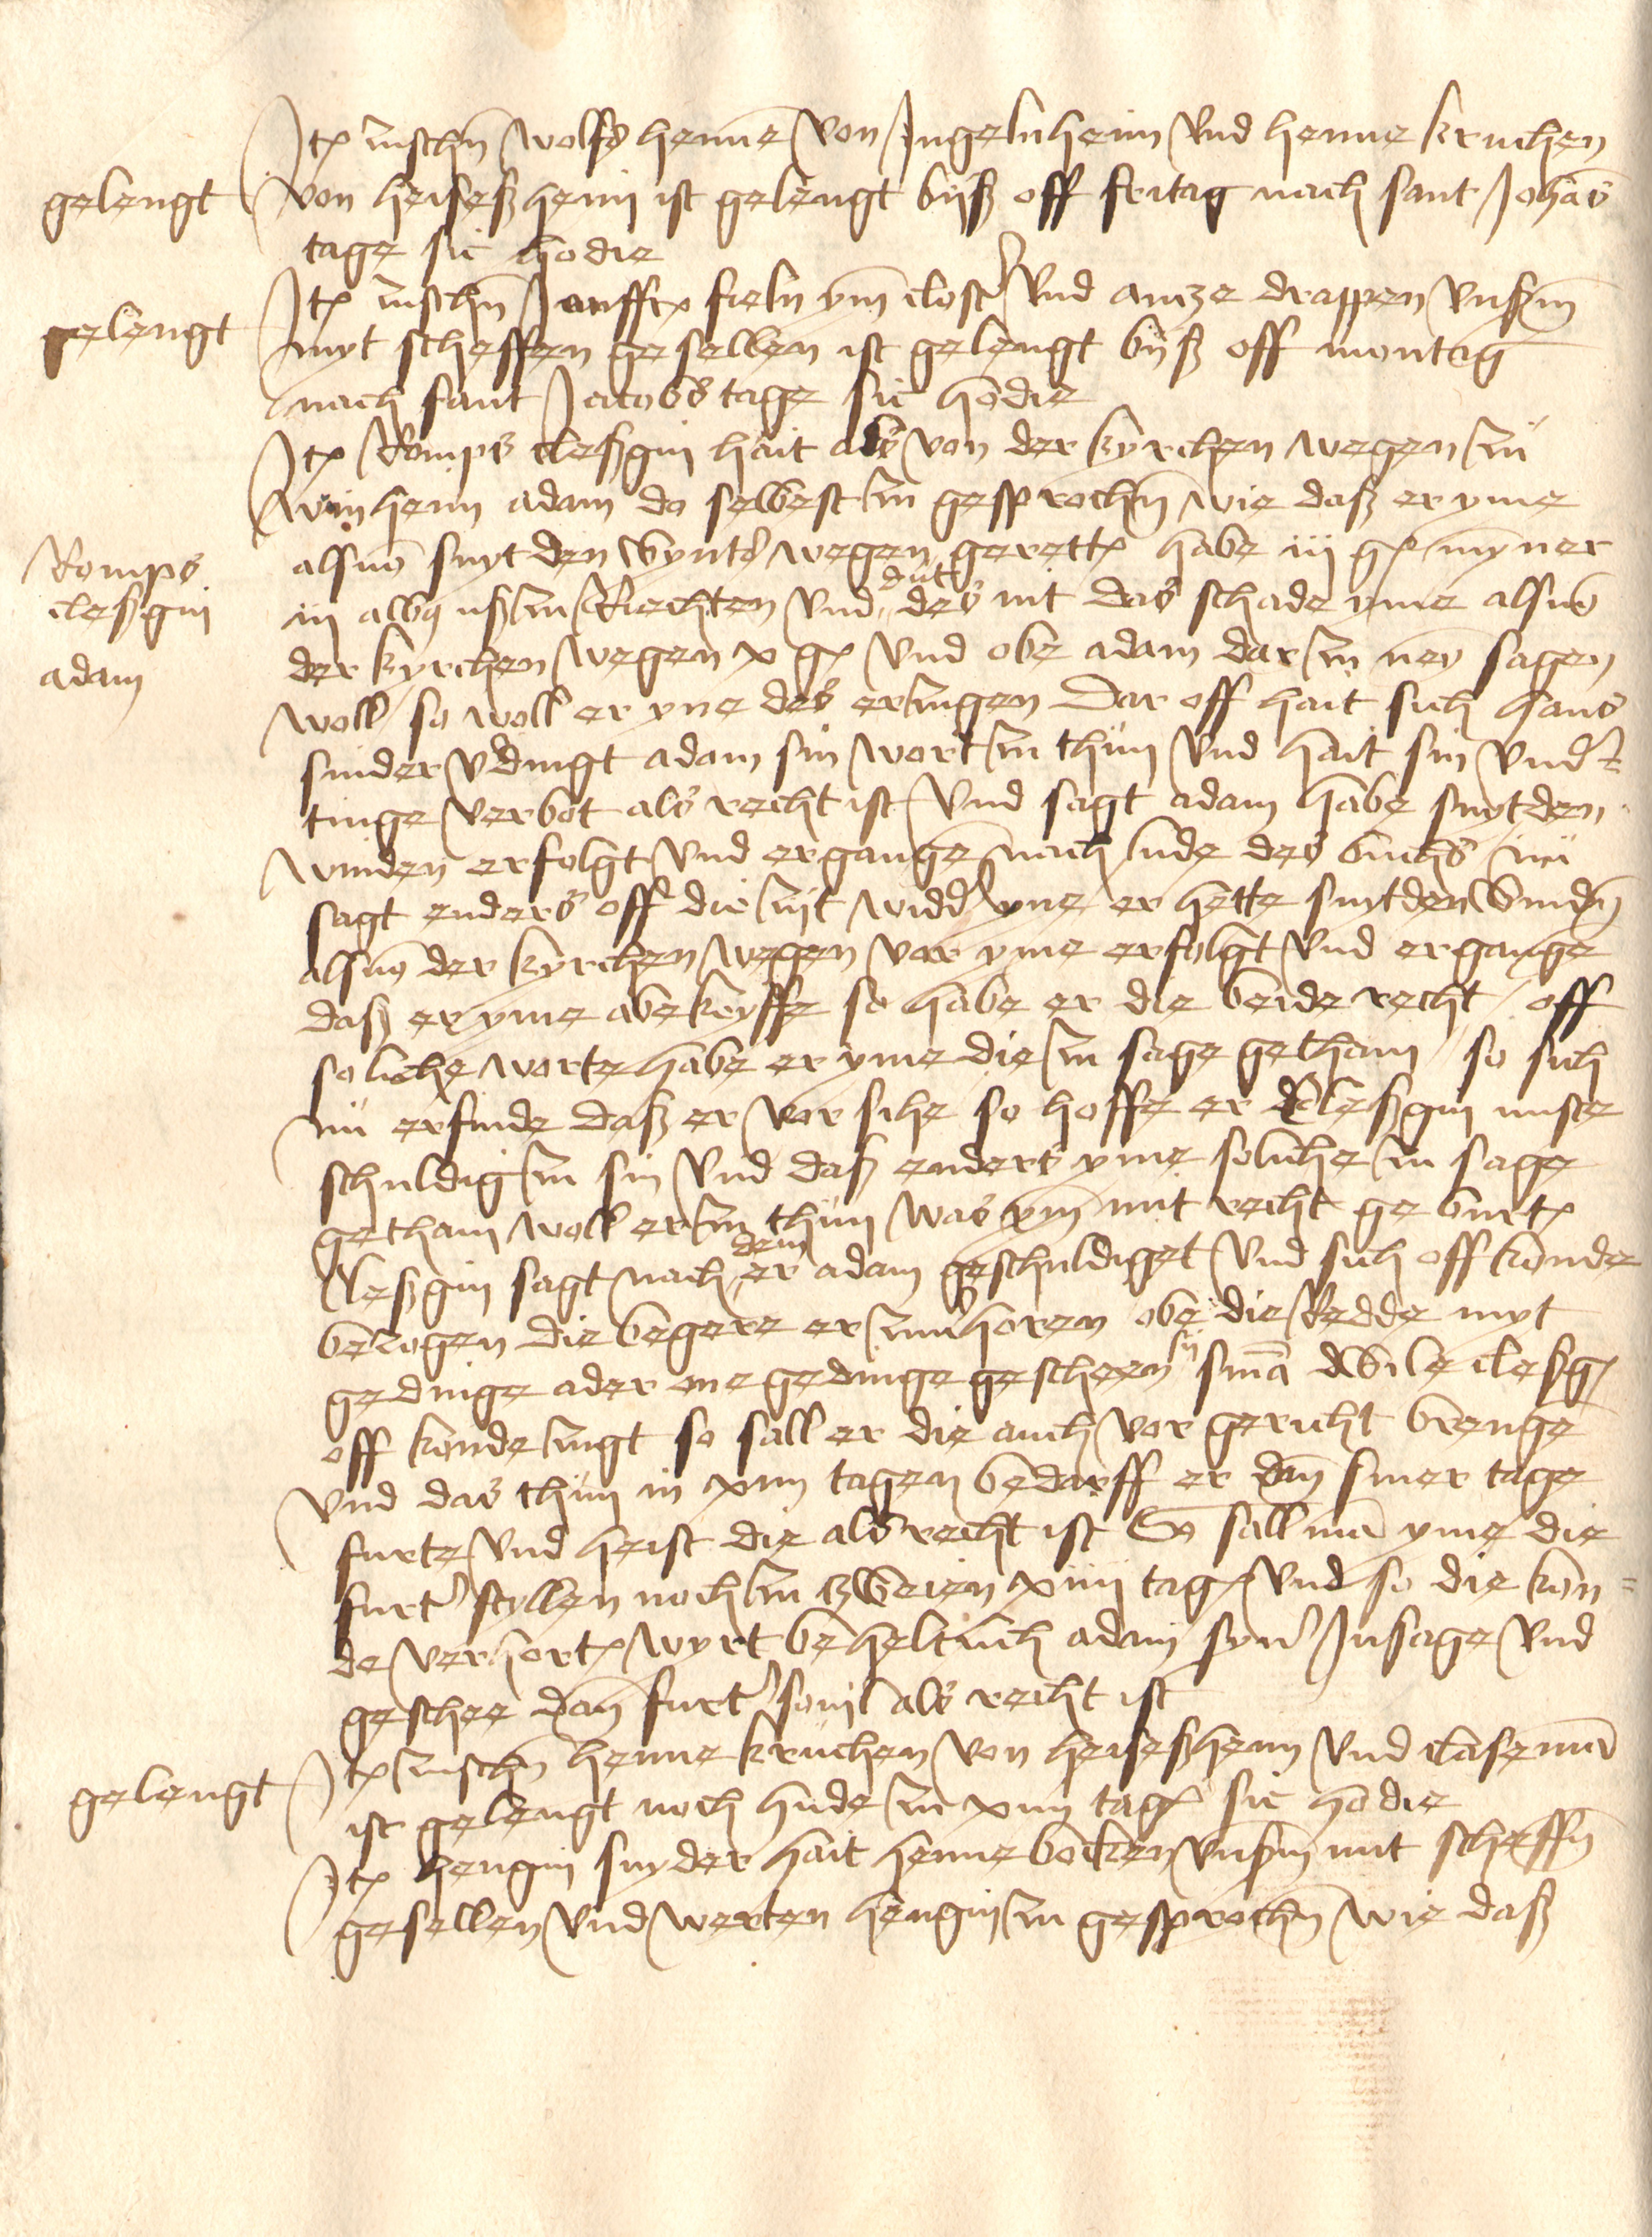 Jt(em) zusch(e)n wolffs henne von Jngelnheim vnd henne kruchen
gelengt
von heiseßheim ist gelengt byß off fritag nach sant Joha(n)s
tage sic hodie
Jt(em) zusch(e)n
fieln ym closter vnd antze drappen vnß(er)m
gelengt
myt scheffen gesellen ist gelengt byß off montag
nach sant Jacobs tage sic hodie
Jt(em) Romps cleßgin hait als von der kyrchen wegen zu
winhem adam da selbest zu gesproch(e)n wie daß er yme
also snytden wegen gerett habe iij g(u)l(den) myner
Romps
iij alb(us) ußzurichten vnd dut des nit das schade yme also
cleßgin
der kyrchen wegen x g(u)l(den) vnd obe adam dar zu ney sagen
adam
woll so woll er yne des erzugen Dar off hait sich hans
snider v(er)dingt adam sin wort zu thun vnd hait sin vnd(er)=
tinge verbot als recht ist vnd sagt adam habe snytden
winden erfolgt vnd ergangen nach lude des buchs nu
sagt enders off die zijt widd(er) yne er hette snytden winden
also der kyrchen wegen vor yme erfolgt vnd ergange(n)
daß er yme abekeyffe so habe er die beide recht off
soliche worte habe er yme die zu sage getham so sich
nu erfinde daß er vor sihe so hoffe er cleßgin nuste
schuldig zu sin vnd daß enders yme soliche zu sage
getham woll er zu thun was ym mit recht geburt
Cleßgin sagt nach dem er adam geschuldiget vnd sich off konde
bezogen die begere er zuu(er)horen obe die Redde myt
gedinge ader one gedinge gescheen sij s(e)n(tent)ia dwile cleßg(in)
off konde zugt so sall er die auch vor gericht brenge(n)
vnd das thun in xiiij tagen bedarff er dan siner tage
furte vnd heist die als recht ist So sall ma(n) yme die
furt(er) styllen noch zu zweien xiiij tag(en) vnd so die kon=
de verhort wyrt beheltlich adam syn(er) Jnsage vnd
geschee dan furt(er) souil als recht ist
Jt(em) zusch(e)n henne kruchen von heiseßheim vnd clasema(n)
gelengt
ist gelengt noch hude zu xiiij tag(en) sic hodie
Jt(em) hengin snyder hait henne bocken vnß(er)m mit scheff(e)n
gesellen vnd werten hengin zu gesproch(e)n wie daß